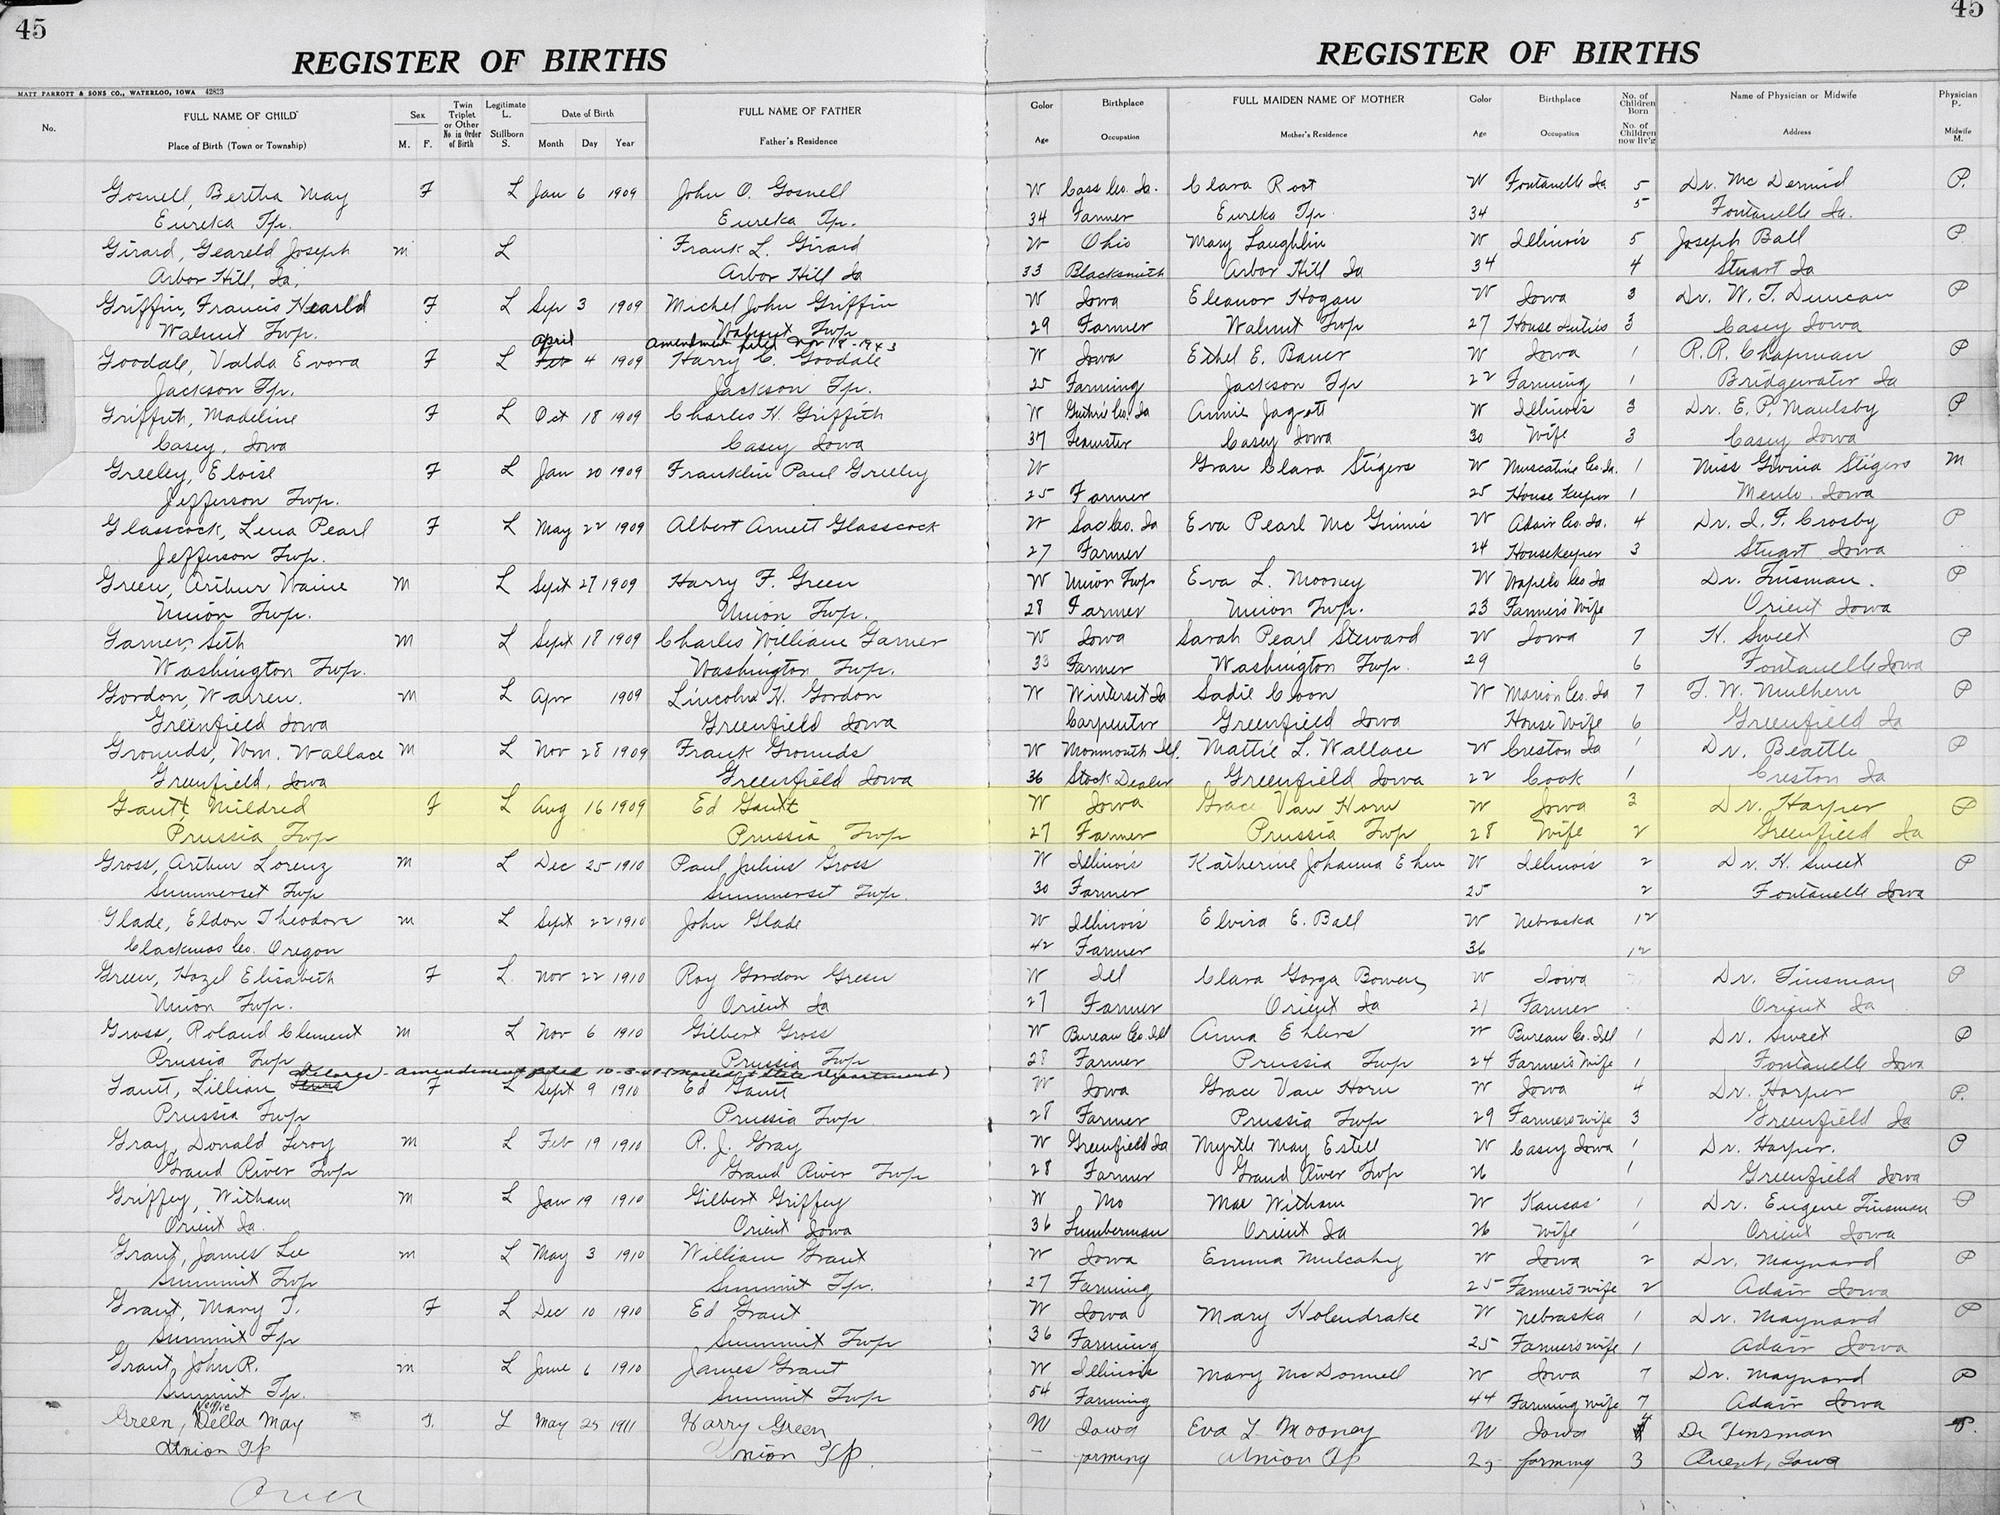 45
45
REGISTER OF BIRTHS
REGISTER OF BIRTHS
MATT PARROTT & SONS CO., WATERLOO, IOWA 42823
No. FULL NAME OF CHILD Sex Twin Triplet or Other No. in Order of Birth Legitimate L. Date of Birth FULL NAME OF FATHER Color Birthplace FULL MAIDEN NAME OF MOTHER Color Birthplace No. of Children Born Name of Physician or Midwife Physician P.
Place of Birth (Town or Township) M. F. Stillborn S. Month Day Year Father's Residence Age Occupation Mother's Residence Age Occupation No. of Children now liv'g Address Midwife M.
Gosnell, Bertha May F L Jan 6 1909 John O. Gosnell W Cass Co. Ia. Clara Root W Fontanelle Ia 5 Dr. Mc Dermid P.
Eureka Tp. Eureka Tp. 34 Farmer Eureka Tp. 34 5 Fontanelle Ia.
Girard, Geareld Joseph M L Frank L. Girard W Ohio Mary Laughlin W Illinois 5 Joseph Ball P
Arbor Hill, Ia. Arbor Hill Ia 33 Blacksmith Arbor Hill Ia 34 4 Stuart Ia
Griffin, Francis Nearld F L Sep 3 1909 Michel John Griffin W Iowa Eleanor Hogan W Iowa 3 Dr. W. T. Duncan P
Walnut Twp. Walnut Twp 29 Farmer Walnut Twp 27 House duties 3 Casey Iowa
April amendment filed Nov 18-1943
Goodale, Valda Evora F L Feb 4 1909 Harry C. Goodale W Iowa Ethel E. Bauer W Iowa 1 R.R. Chapman P
Jackson Tp. Jackson Tp. 25 Farming Jackson Tp 22 Farming 1 Bridgewater Ia
Griffith, Madeline F L Oct 18 1909 Charles H. Griffith W Guthrie Co. Ia Annie Jagott W Illinois 3 Dr. E. P. Maulsby P
Casey, Iowa Casey Iowa 37 Teamster Casey Iowa 30 Wife 3 Casey Iowa
Greeley, Eloise F L Jan 20 1909 Franklin Paul Greeley W Grace Clara Stigers W Muscatine Co. Ia. 1 Miss Stigers M
Jefferson Twp. 25 Farmer 25 House Keeper 1 Menlo. Iowa
Glasscock, Lena Pearl F L May 22 1909 Albert Arnett Glasscock W Sac Co. Ia Eva Pearl Mc Ginnis W Adair Co. Ia. 4 Dr. I. F. Crosby P
Jefferson Twp. 27 Farmer 24 Housekeeper 3 Stuart Iowa
Green, Arthur Waine M L Sept 27 1909 Harry F. Green W Union Twp Eva L. Mooney W Wapelo Co Ia Dr. Tinsman. P
Union Twp. Union Twp. 28 Farmer Union Twp. 23 Farmer's Wife Orient Iowa
Garner, Seth M L Sept 18 1909 Charles William Garner W Iowa Sarah Pearl Steward W Iowa 7 H. Sweet P
Washington Twp. Washington Twp. 33 Farmer Washington Twp. 29 6 Fontanelle Iowa
Gordon, Warren. M L Apr 1909 Lincoln H. Gordon W Winterset Ia Sadie Coon W Marion Co. Ia 7 F. W. Mulhern P
Greenfield Iowa Greenfield Iowa Carpenter Greenfield Iowa House Wife 6 Greenfield Ia
Grounds, Wm. Wallace M L Nov 28 1909 Frank Grounds W Monmouth Ill. Mattie L. Wallace W Creston Ia 1 Dr. Beattle P
Greenfield, Iowa Greenfield Iowa 36 Stock Dealer Greenfield Iowa 22 Cook 1 Creston Ia
Gautt Mildred F L Aug 16 1909 Ed Gautt W Iowa Grace Van Horn W Iowa 3 Dr. Harper P
Prussia Twp Prussia Twp 27 Farmer Prussia Twp 28 Wife 2 Greenfield Ia
Gross, Arthur Lorenz M L Dec 25 1910 Paul Julius Gross W Illinois Katherine Johanna Ehm W Illinois 2 Dr. H. Sweet P
Summerset Twp Summerset Twp. 30 Farmer 25 2 Fontanelle Iowa
Glade, Eldon Theodore M L Sept 22 1910 John Glade W Illinois Elvira E. Ball W Nebraska 12
Clackmas Co. Oregon 42 Farmer 36 12
Green, Hazel Elisabeth F L. Nov 22 1910 Roy Gordon Green W Ill Clara Gorga Bowen W Iowa Dr. Tinsman P
Union Twp. Orient Ia 27 Farmer Orient Ia 21 Farmer Orient Ia
Gross, Roland Clement M L Nov 6 1910 Gilbert Gross W Bureau Co. Ill Anna Ehlers W Bureau Co. Ill 1 Dr. Sweet P
Prussia Twp Prussia Twp 28 Farmer Prussia Twp 24 Farmer's Wife 1 Fontanelle Iowa
Delores - amendment filed 10-3-41 (mailed to state department)
Gautt, Lillian F L Sept 9 1910 Ed Gautt W Iowa Grace Van Horn W Iowa 4 Dr. Harper P.
Prussia Twp Prussia Twp 28 Farmer Prussia Twp 29 Farmers wife 3 Greenfield Ia
Gray, Donald Leroy M L Feb 19 1910 R. J. Gray W Greenfield Ia Myrtle May Estell W Casey Iowa 1 Dr. Harper. P
Grand River Twp Grand River Twp 28 Farmer Grand River Twp 26 1 Greenfield Iowa
Griffey, Witham M L Jan 19 1910 Gilbert Griffey W Mo Mae Witham W Kansas 1 Dr. Eugene Tinsman P
Orient Ia. Orient Iowa 36 Lumberman Orient Ia 26 Wife 1 Orient Iowa
Grant, James Lee M L May 3 1910 William Grant W Iowa Emma Mulcahy W Iowa 2 Dr. Maynard P
Summit Twp Summit Tp. 27 Farming 25 Farmer's wife 2 Adair Iowa
Grant, Mary T. F L Dec 10 1910 Ed Grant W Iowa Mary Holendrake W Nebraska 1 Dr. Maynard P
Summit Tp Summit Twp 36 Farming 25 Farmers wife 1 Adair Iowa
Grant, John R. M L June 6 1910 James Grant W Illinois Mary McDonnell W Iowa 7 Dr. Maynard P
Summit Tp. Summit Twp 54 Farming 44 Farming wife 7 Adair Iowa
Nellie
Green, Della May F. L May 25 1911 Harry Green W Iowa Eva L Mooney W Iowa 4 Dr Tinsman P.
Union Tp Union Tp. - farming Union Tp 25 farming 3 Orient, Iowa
Over